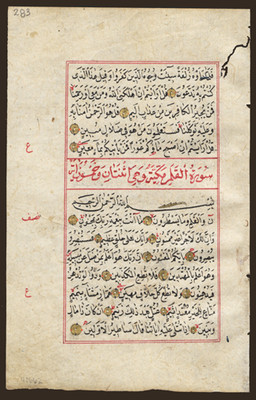 283
فَلَمَّا رَأَوْهُ زُلْفَةً سِيئَتْ وُجُوهُ الَّذِينَ كَفَرُوا وَقِيلَ هَذَا الَّذِي
كُنْتُمْ بِهِ تَدَّعُونَ قُلْ أَرَأَيْتُمْ إِنْ أَهْلَكَنِيَ اللَّهُ وَمَنْ مَعِيَ أَوْ رَحِمَنَا
فَمَنْ يُجِيرُ الْكَافِرِينَ مِنْ عَذَابٍ أَلِيمٍ قُلْ هُوَ الرَّحْمَنُ آمَنَّا بِهِ
وَعَلَيْهِ تَوَكَّلْنَا فَسَتَعْلَمُونَ مَنْ هُوَ فِي ضَلَالٍ مُبِينٍ
قُلْ أَرَأَيْتُمْ إِنْ أَصْبَحَ مَاؤُكُمْ غَوْرًا فَمَنْ يَأْتِيكُمْ بِمَاءٍ مَعِينٍ
ع
سورة القلم مكية وهي اثنتان وخمسون آية
بِسْمِ اللَّهِ الرَّحْمَنِ الرَّحِيمِ
ن وَالْقَلَمِ وَمَا يَسْطُرُونَ مَا أَنْتَ بِنِعْمَةِ رَبِّكَ بِمَجْنُونٍ
نصف
وَإِنَّ لَكَ لَأَجْرًا غَيْرَ مَمْنُونٍ وَإِنَّكَ لَعَلَى خُلُقٍ عَظِيمٍ فَسَتُبْصِرُ وَ
يُبْصِرُونَ بِأَيِّكُمُ الْمَفْتُونُ إِنَّ رَبَّكَ هُوَ أَعْلَمُ بِمَنْ ضَلَّ عَنْ سَبِيلِهِ
وَهُوَ أَعْلَمُ بِالْمُهْتَدِينَ فَلَا تُطِعِ الْمُكَذِّبِينَ وَدُّوا لَوْ تُدْهِنُ
فَيُدْهِنُونَ وَلَا تُطِعْ كُلَّ حَلَّافٍ مَهِينٍ هَمَّازٍ مَشَّاءٍ بِنَمِيمٍ
ع
مَنَّاعٍ لِلْخَيْرِ مُعْتَدٍ أَثِيمٍ عُتُلٍّ بَعْدَ ذَلِكَ زَنِيمٍ أَنْ كَانَ ذَا مَالٍ
وَبَنِينَ إِذَا تُتْلَى عَلَيْهِ آيَاتُنَا قَالَ أَسَاطِيرُ الْأَوَّلِينَ